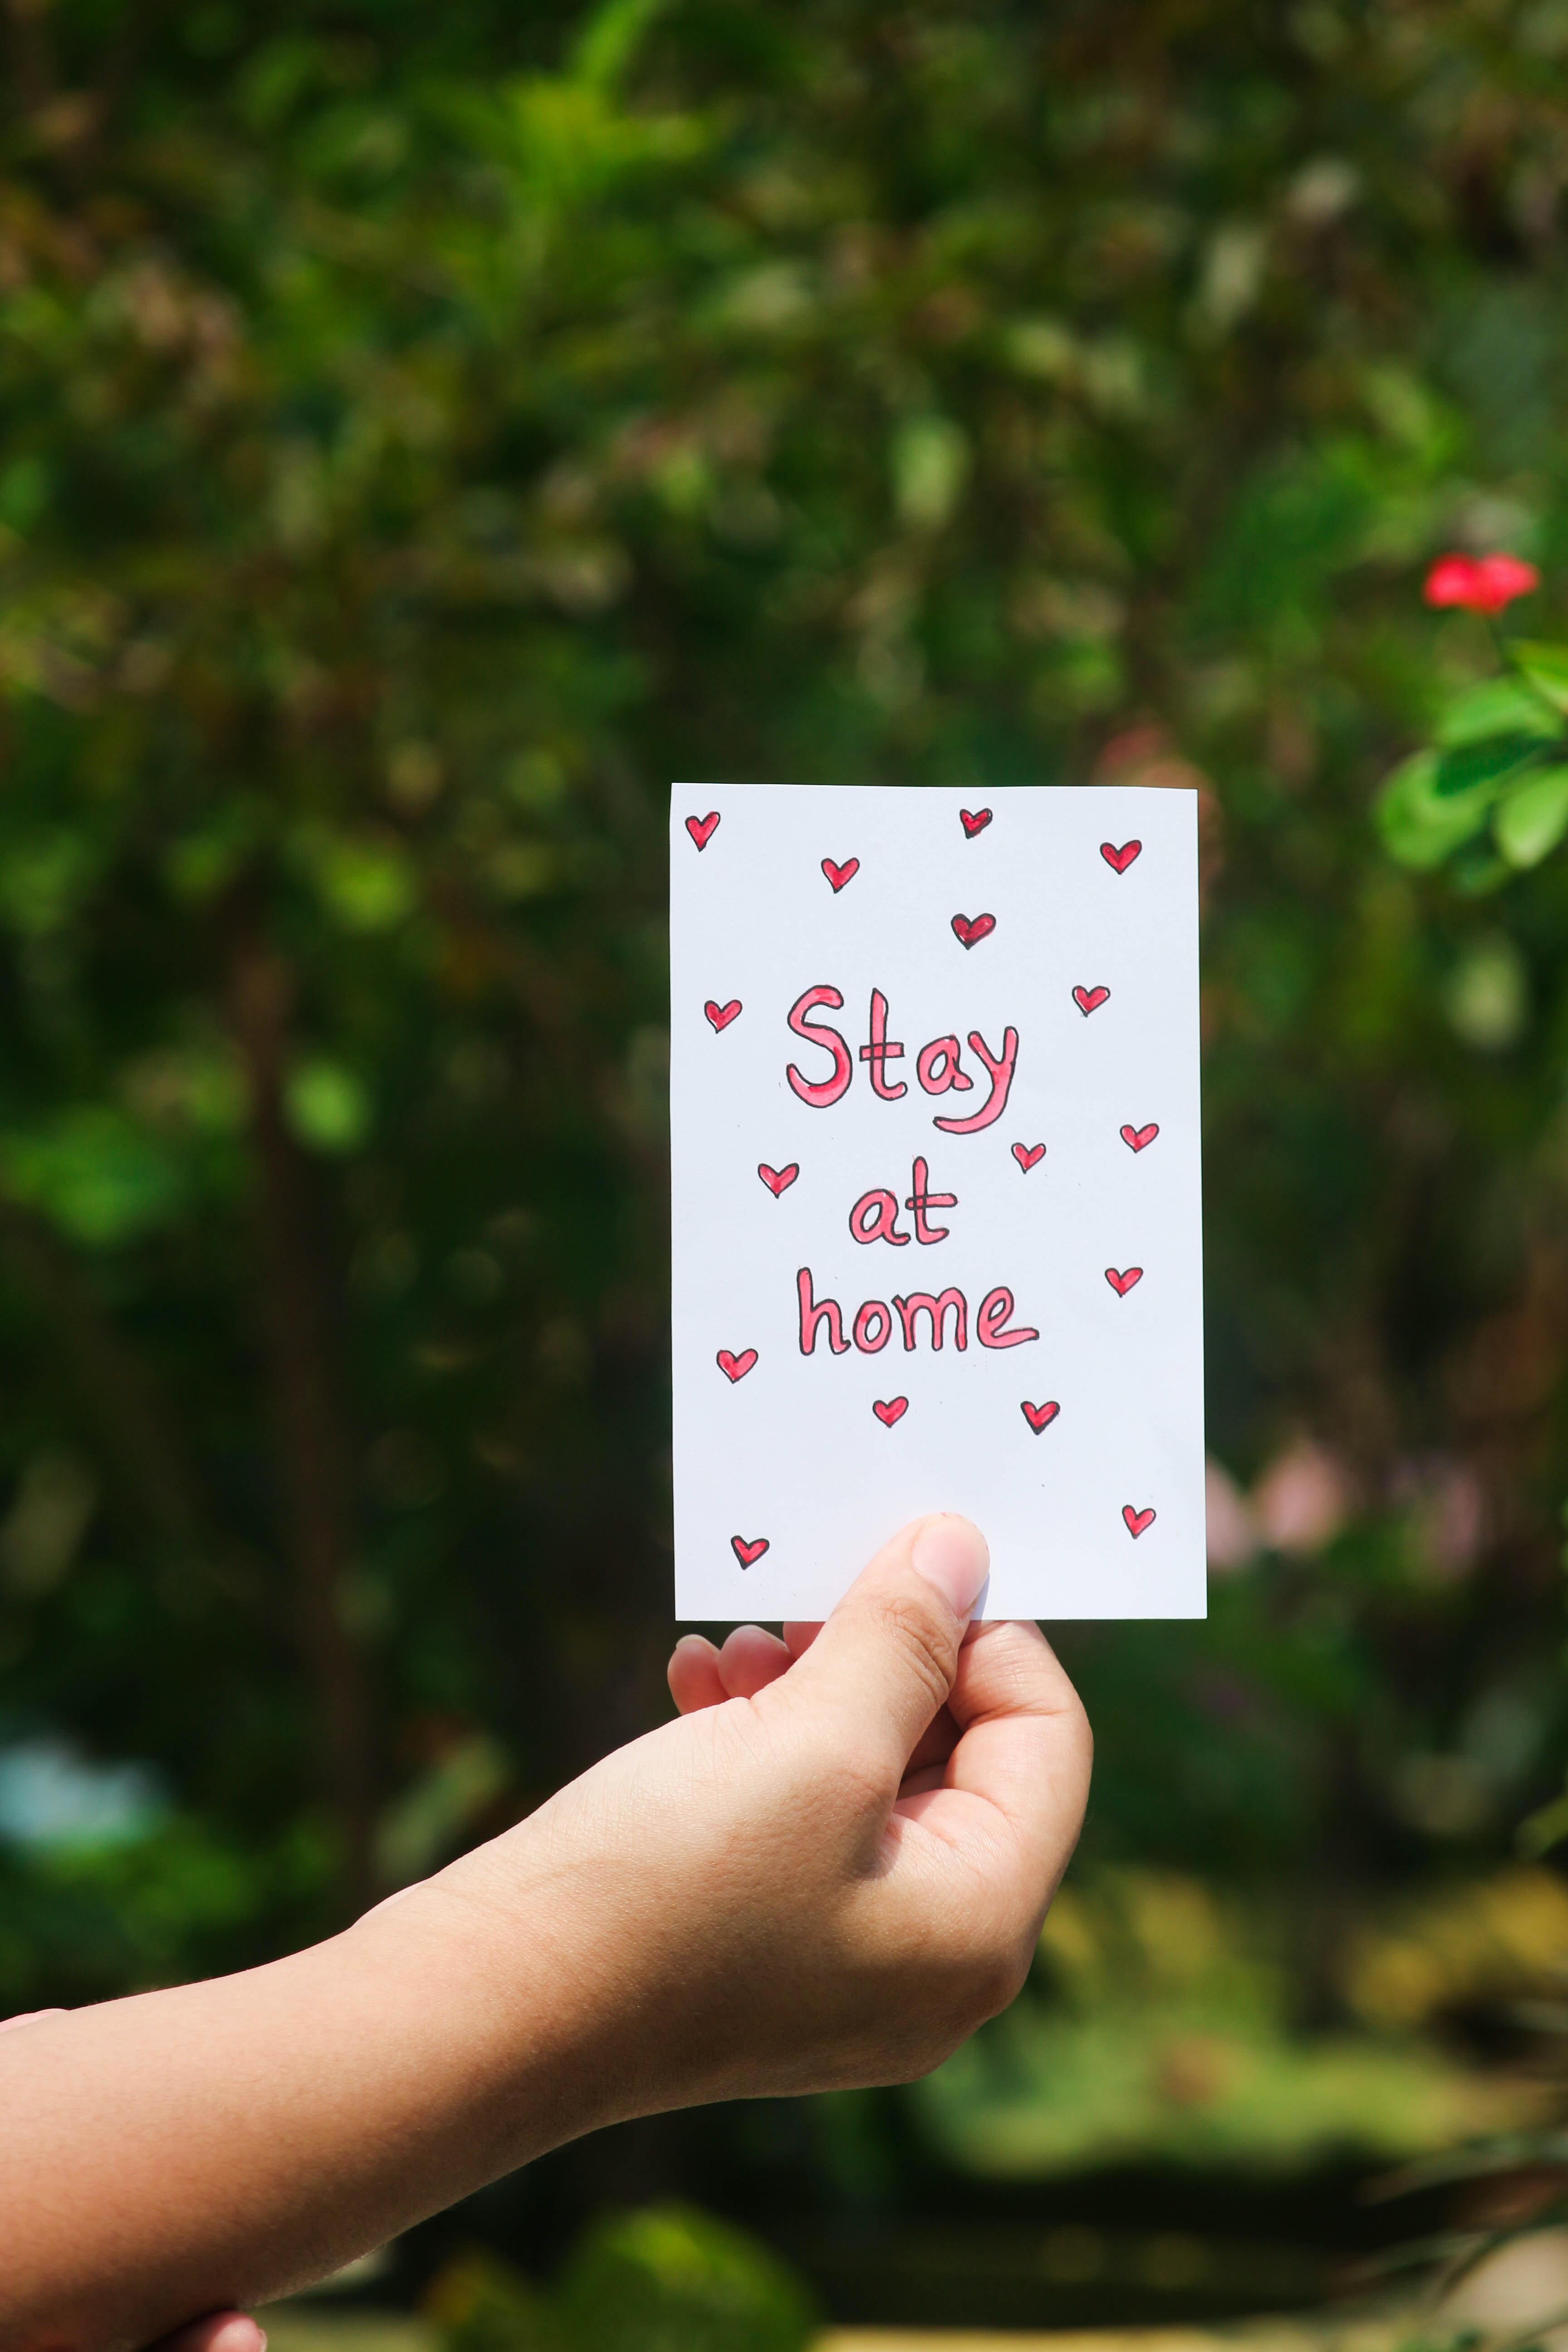 Stay
at
home